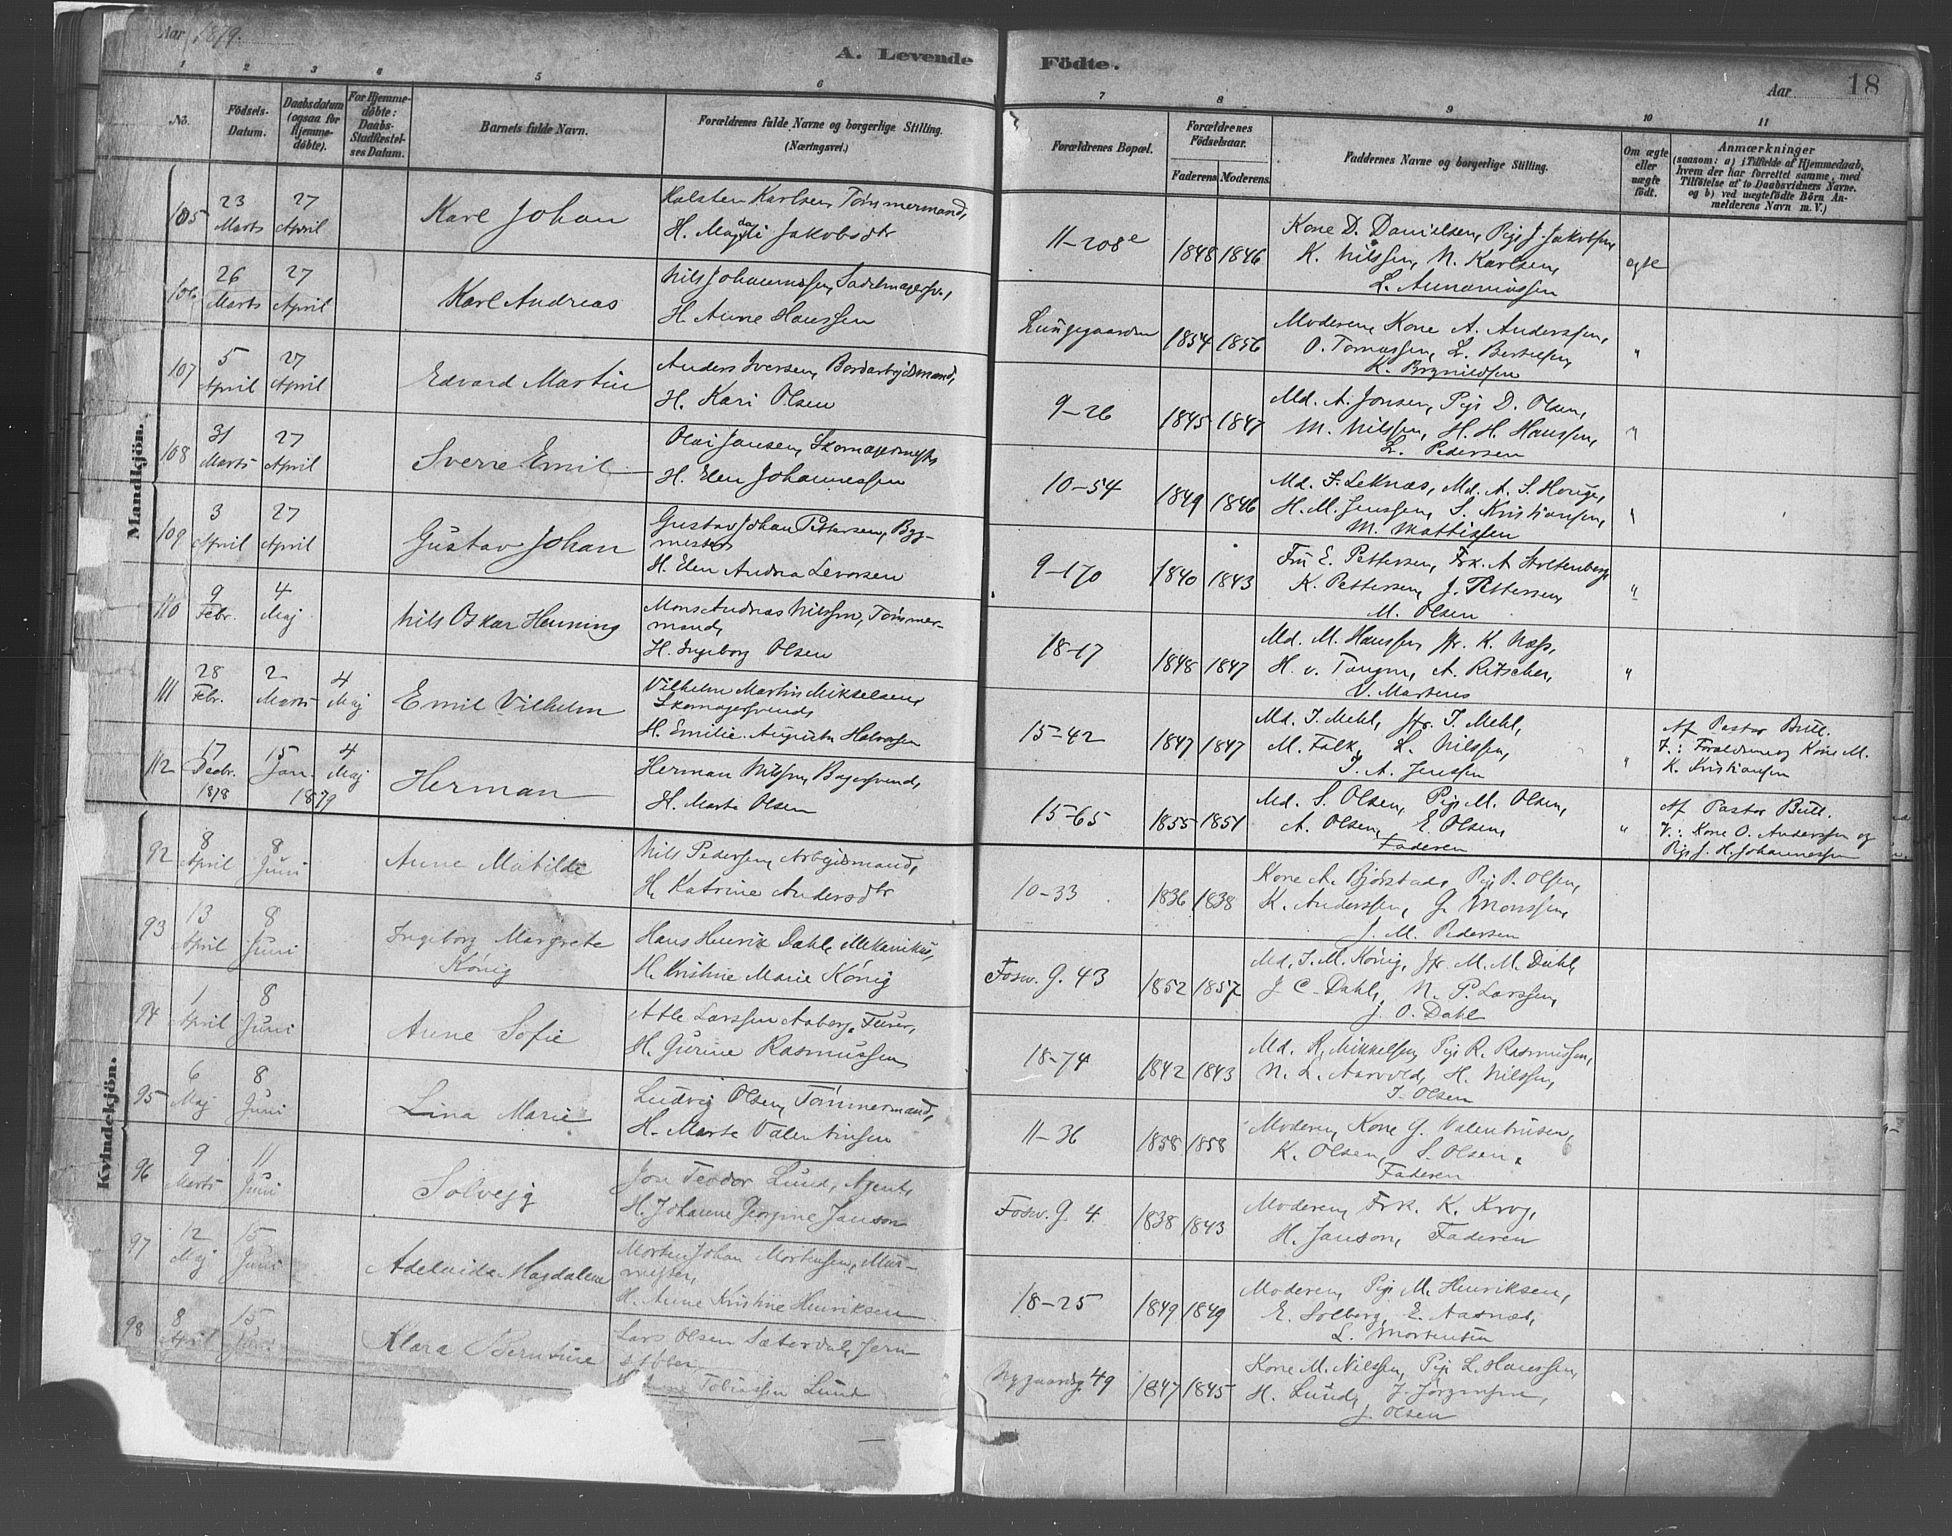 Aar 1879.
A. Levende Födte.
Aar
18
1 2 3 4 5 6 7 8 9 10 11
No.
Födsels-Datum.
Daabsdatum (ogsaa for Hjemme-döbte).
For Hjemme-döbte: Daabs-Stadfæstel-ses Datum.
Barnets fulde Navn.
Forældrenes fulde Navne og borgerlige Stilling. (Næringsvei.)
Forældrenes Bopæl.
Forældrenes Födselsaar.
Faderens Moderens.
Faddernes Navne og borgerlige Stilling.
Om ægte eller uægte födt.
Anmærkninger
(saasom: a) i Tilfælde af Hjemmedaab, hvem der har forrettet samme, med Tilföielse af to Daabsvidners Navne. og b) ved uægtefödte Börn An-melderens Navn m. V.)
Mandkjön.
105 23 Marts 27 April Karl Johan Halsten Karlsen, Tømmermand,
H. Magdali Jakobsdtr 11-208e 1848 1846 Kone D. Danielsen, Pige J. Jakobsen,
K. Nilssen, N. Karlsen, ægte
106 26 Marts 27 April Karl Andreas Nils Johannessen, Sadelmagersv.,
H. Anne Hanssen Lungegaarden 1854 1856 Moderen, Kone A. Anderssen,
O. Tomassen, L. Bertelsen, "
K. Brynildsen
107 5 April 27 April Edvard Martin Anders Iversen, Bordarbejdsmand,
H. Kari Olsen 9-26 1845 1847 Md. A. Jonsen, Pige D. Olsen,
M. Nilssen, H. H. Hanssen, "
L. Pedersen
108 31 Marts 27 April Sverre Emil Olai Jansen, Skomagermester
H. Elen Johannessen 10-54 1849 1846 Md. F. Leknæs, Md. A. S. Houge,
H. M. Jenssen, S. Kristiansen, "
M. Mattissen
109 3 April 27 April Gustav Johan Gustav Johan Pettersen, Byg-
mester
H. Elen Andrea Levorsen 9-170 1840 1843 Fru E. Pettersen, Frk. A. Stoltenberg,
K. Pettersen, J. Pettersen, "
M. Olsen
110 9 Febr. 4 Maj Nils Oskar Henning Mons Andreas Nilssen, Tømmer-
mand,
H. Ingeborg Olsen 18-17 1848 1847 Md. M. Hanssen, Jfr. K. Næss,
H. v. Tangen, A. Ritscher, "
V. Martens
111 28 Febr. 2 Marts 4 Maj Emil Vilhelm Vilhelm Martin Mikkelsen,
Skomagersvend,
H. Emilie Augusta Halvorsen 15-42 1847 1847 Md. I. Mehl, Jfr. I. Mehl,
M. Falk, L. Nilssen, "
I. A. Jenssen Af Pastor Bull.
V.: Forældrene, Kone M.
K. Kristiansen
112 17 Decbr. 1878 15 Jan. 1879 4 Maj Herman Herman Nilssen, Bagersvend,
H. Marta Olsen 15-65 1855 1851 Md. S. Olsen, Pige M. Olsen,
A. Olsen, E. Olsen, "
Faderen Af Pastor Bull.
V.: Kone O. Anderssen og
Pige J. H. Johannessen
Kvindekjön.
92 8 April 8 Juni Anne Matilde Nils Pedersen, Arbejdsmand,
H. Katrine Andersdtr 10-33 1836 1838 Kone A. Bjørstad, Pige P. Olsen,
K. Anderssen, G. Monssen,
J. M. Pedersen
93 13 April 8 Juni Ingeborg Margrete
König Hans Henrik Dahl, Mekanikus,
H. Kristine Marie König Fosw. G. 43 1852 1857 Md. I. M. König, Jfr. M. M. Dahl,
J. C. Dahl, N. P. Larssen,
J. O. Dahl
94 1 April 8 Juni Anne Sofie Atle Larssen Aaberg, Fører,
H. Gurine Rasmussen 18-74 1842 1843 Md. R. Mikkelsen, Pige R. Rasmussen,
N. L. Aarvold, H. Nilssen,
I. Olsen
95 6 Maj 8 Juni Lina Marie Ludvig Olsen, Tømmermand,
H. Marta Valentinsen 11-36 1858 1858 Moderen, Kone G. Valentinsen,
K. Olsen, S. Olsen,
Faderen
96 9 Marts 11 Juni Solvejg Jon Teodor Lund, Agent,
H. Johanne Georgine Janson Fosw. G. 4. 1838 1843 Moderen, Frk. K. Krog,
H. Janson, Faderen
97 12 Maj 15 Juni Adelaide Magdalene Morten Johan Mortensen, Mur-
mester,
H. Anne Kristine Henriksen 18-25 1849 1849 Moderen, Pige M. Henriksen,
E. Solberg, E. Aasnæs,
L. Mortensen
98 8 April 15 Juni Klara Berntine Lars Olsen Sæterdal, Jern-
støber
Tobiassen Lund Nygaardsg. 49 1847 1845 Kone M. Nilssen, Pige L. Hanssen,
H. Lund, J. Jörgensen,
J. Olsen